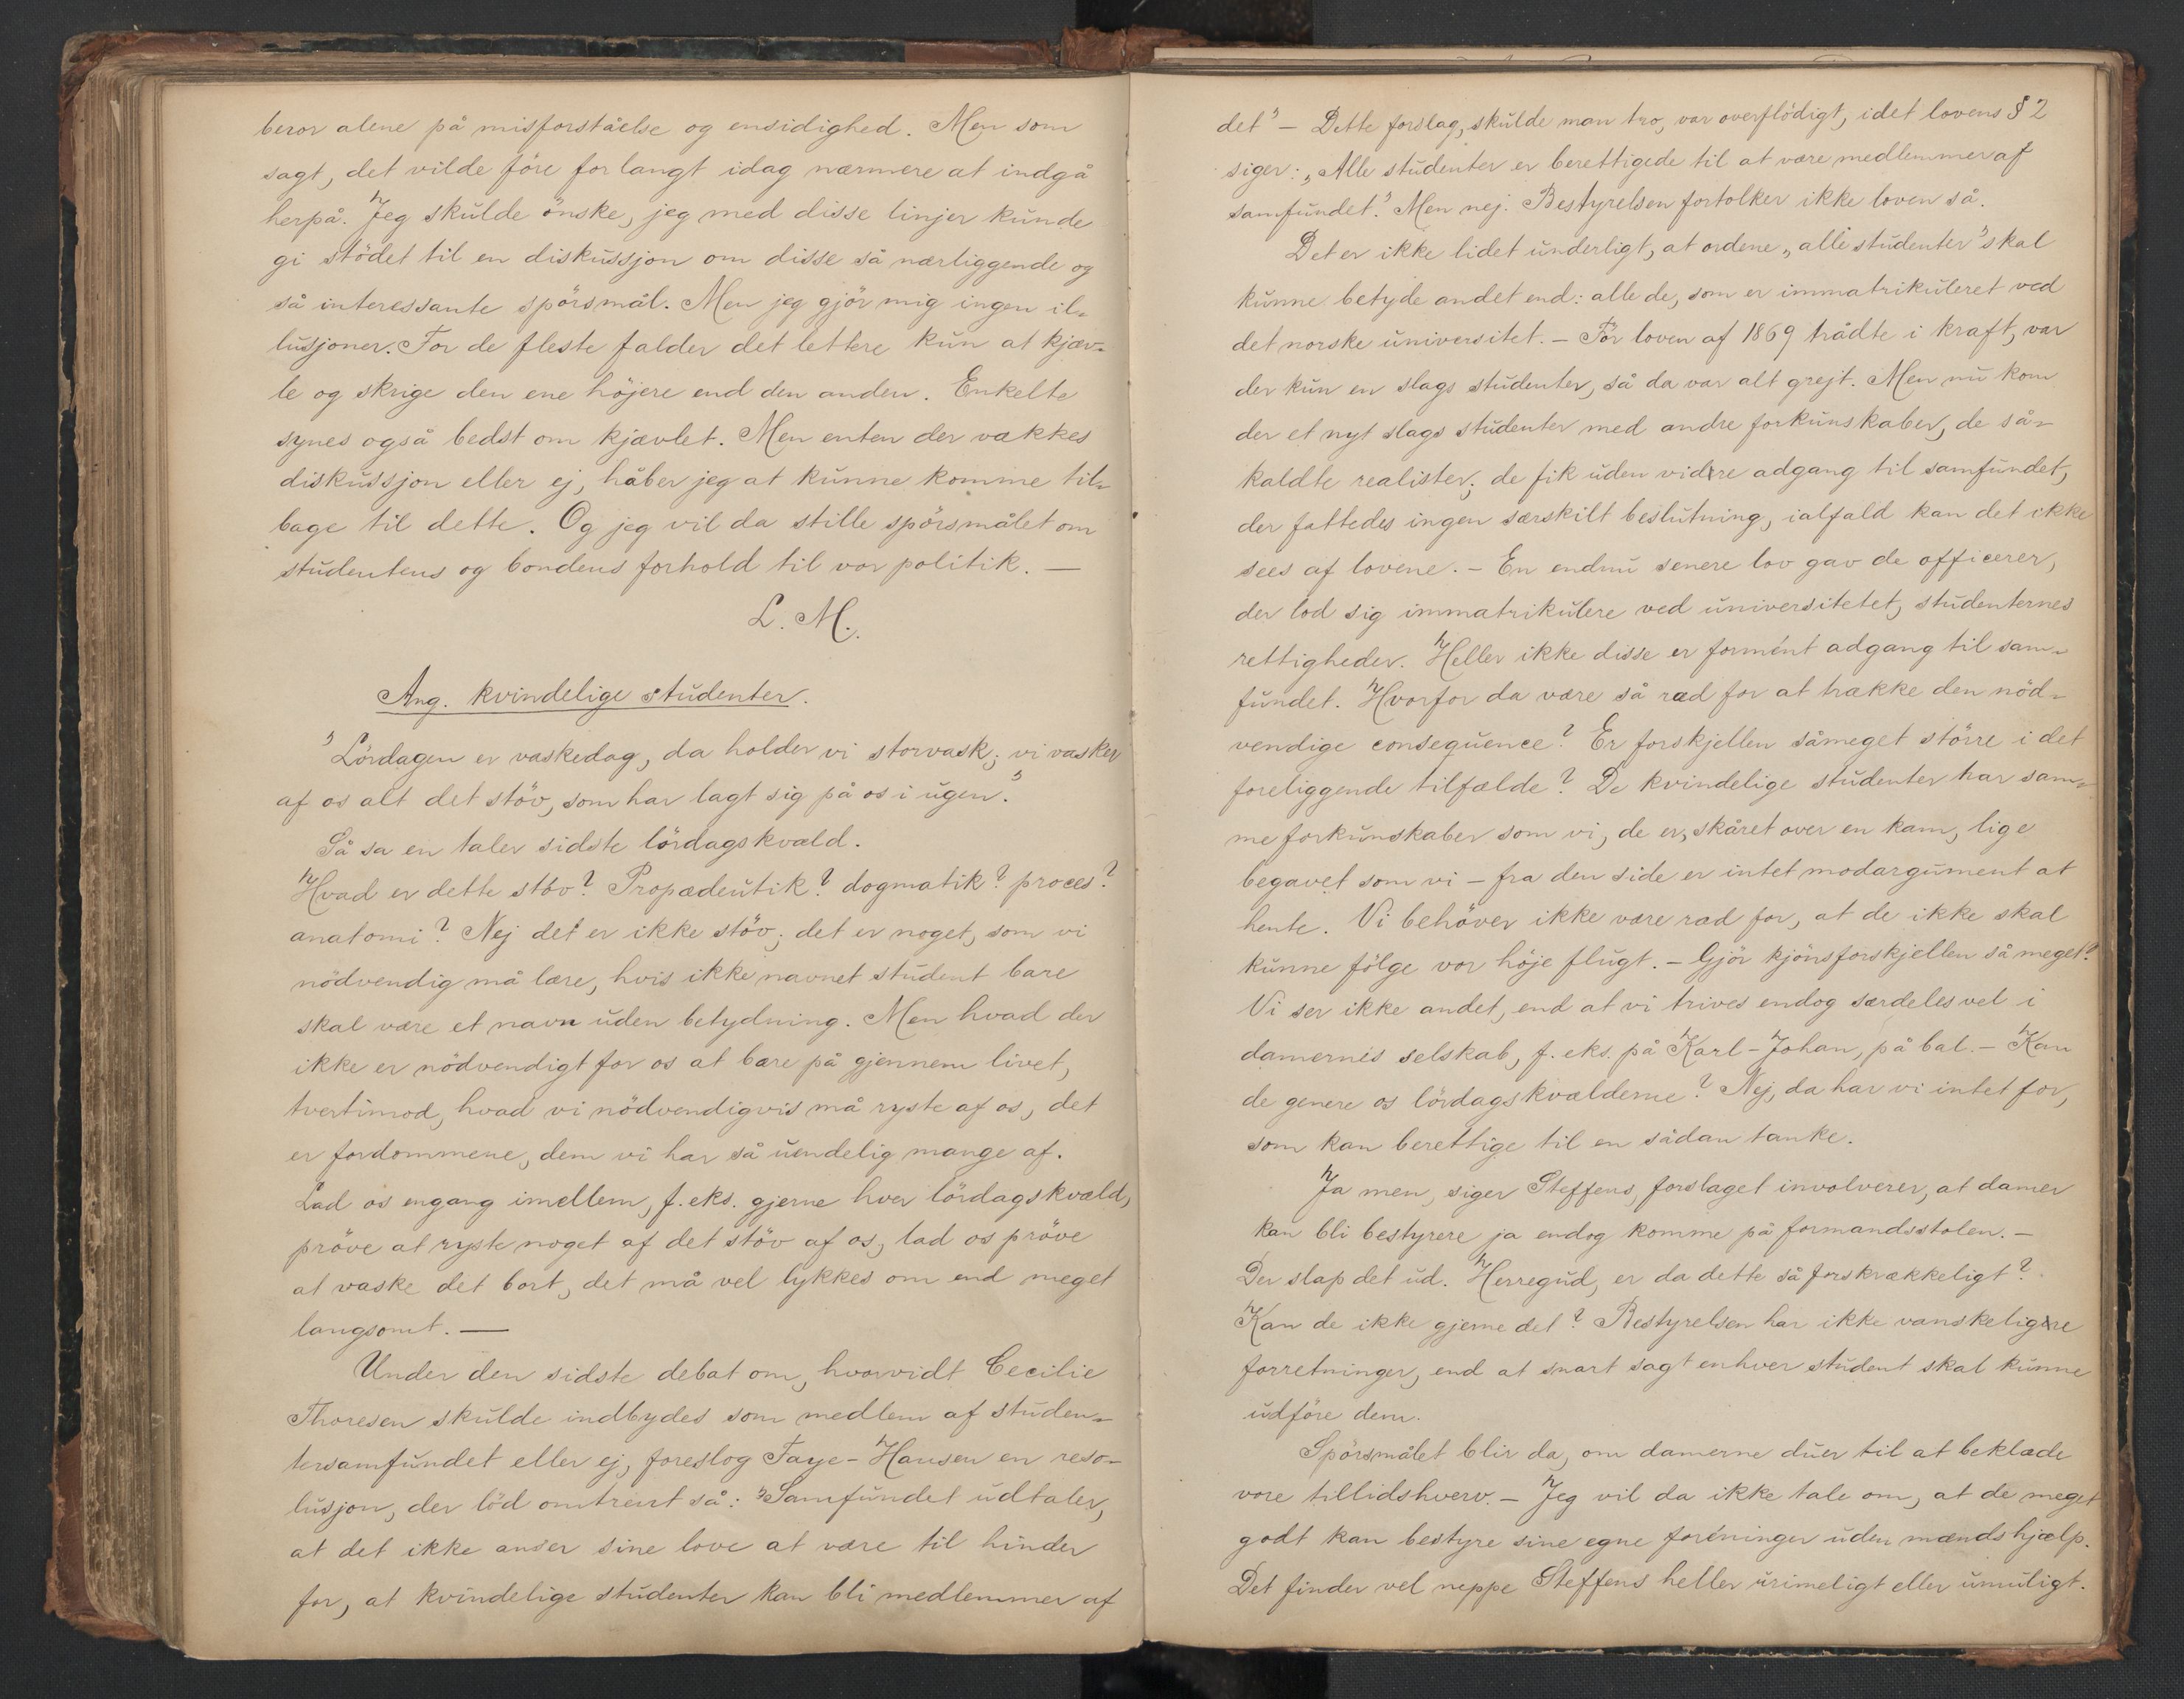 beror alene på misforståelse og ensidighed. Men som
sagt, det vilde føre for langt idag nærmere at indgå
herpå. Jeg skulde ønske, jeg med disse linjer kunde
gi stödet til en diskussjon om disse så nærliggende og
så interessante spörsmål. Men jeg gjör mig ingen il-
lusjoner. For de fleste falder det lettere kun at kjæv-
le og skrige den ene höjere end den anden. Enkelte
synes også bedst om kjævlet. Men enten der vækkes
diskussjon eller ej, håber jeg at kunne komme til-
bage til dette. Og jeg vil da stille spörsmålet om
studentens og bondens forhold til vor politik. —
L. M.
Ang. kvindelige studenter.
"Lördagen er vaskedag, da holder vi storvask; vi vasker
af os alt det stöv, som har lagt sig på os i ugen."
Så sa en taler sidste lördagskvæld.
Hvad er dette stöv? Propædeutik? dogmatik? proces?
anatomi? Nej det er ikke stöv; det er noget, som vi
nödvendig må lære, hvis ikke navnet student bare
skal være et navn uden betydning. Men hvad der
ikke er nödvendigt for os at bære på gjennem livet,
tvertimod, hvad vi nödvendigvis må ryste af os, det
er fordommene, dem vi har så uendelig mange af.
Lad os engang imellem, f. eks. gjerne hver lördagskvæld,
pröve at ryste noget af det stöv af os, lad os pröve
at vaske det bort, det må vel lykkes om end meget
langsomt. —
Under den sidste debat om, hvorvidt Cecilie
Thoresen skulde indbydes som medlem af studen-
tersamfundet eller ej, foreslog Faye-Hansen en reso-
lusjon, der löd omtrent så: "Samfundet udtaler,
at det ikke anser sine love at være til hinder
for, at kvindelige studenter kan bli medlemmer af
det" — Dette forslag, skulde man tro, var overflödigt, idet lovens § 2
siger: "Alle studenter er berettigede til at være medlemmer af
samfundet." Men nej. Bestyrelsen fortolker ikke loven så.
Det er ikke lidet underligt, at ordene "alle studenter" skal
kunne betyde andet end: alle de, som er immatrikuleret ved
det norske universitet. — Før loven af 1869 trådte i kraft, var
der kun en slags studenter, så da var alt grejt. Men nu kom
der et nyt slags studenter med andre forkunskaber, de så-
kaldte realister; de fik uden videre adgang til samfundet,
der fattedes ingen særskilt beslutning, ialfald kan det ikke
sees af lovene. — En endnu senere lov gav de officerer,
der lod sig immatrikulere ved universitetet, studenternes
rettigheder. Heller ikke disse er formént adgang til sam-
fundet. Hvorfor da være så ræd for at trække den nöd-
vendige consequence? Er forskjellen såmeget större i det
foreliggende tilfælde? De kvindelige studenter har sam-
me forkunskaber som vi, de er, skåret over en kam, lige
begavet som vi — fra den side er intet modargument at
hente. Vi behöver ikke være ræd for, at de ikke skal
kunne fölge vor höje flugt. — Gjör kjönsforskjellen så meget?
Vi ser ikke andet, end at vi trives endog særdeles vel i
damernes selskab, f. eks. på Karl-Johan, på bal. — Kan
de genere os lördagskvælderne? Nej, da har vi intet for,
som kan berettige til en sådan tanke.
Ja men, siger Steffens, forslaget involverer, at damer
kan bli bestyrere ja endog komme på formandsstolen. —
Der slap det ud. Herregud, er da dette så forskrækkeligt?
Kan de ikke gjerne det? Bestyrelsen har ikke vanskeligere
forretninger, end at snart sagt enhver student skal kunne
udföre dem.
Spörsmålet blir da, om damerne duer til at beklæde
vore tillidshverv. — Jeg vil da ikke tale om, at de meget
godt kan bestyre sine egne foréninger uden mænds hjælp.
Det finder vel neppe Steffens heller urimeligt eller umuligt.